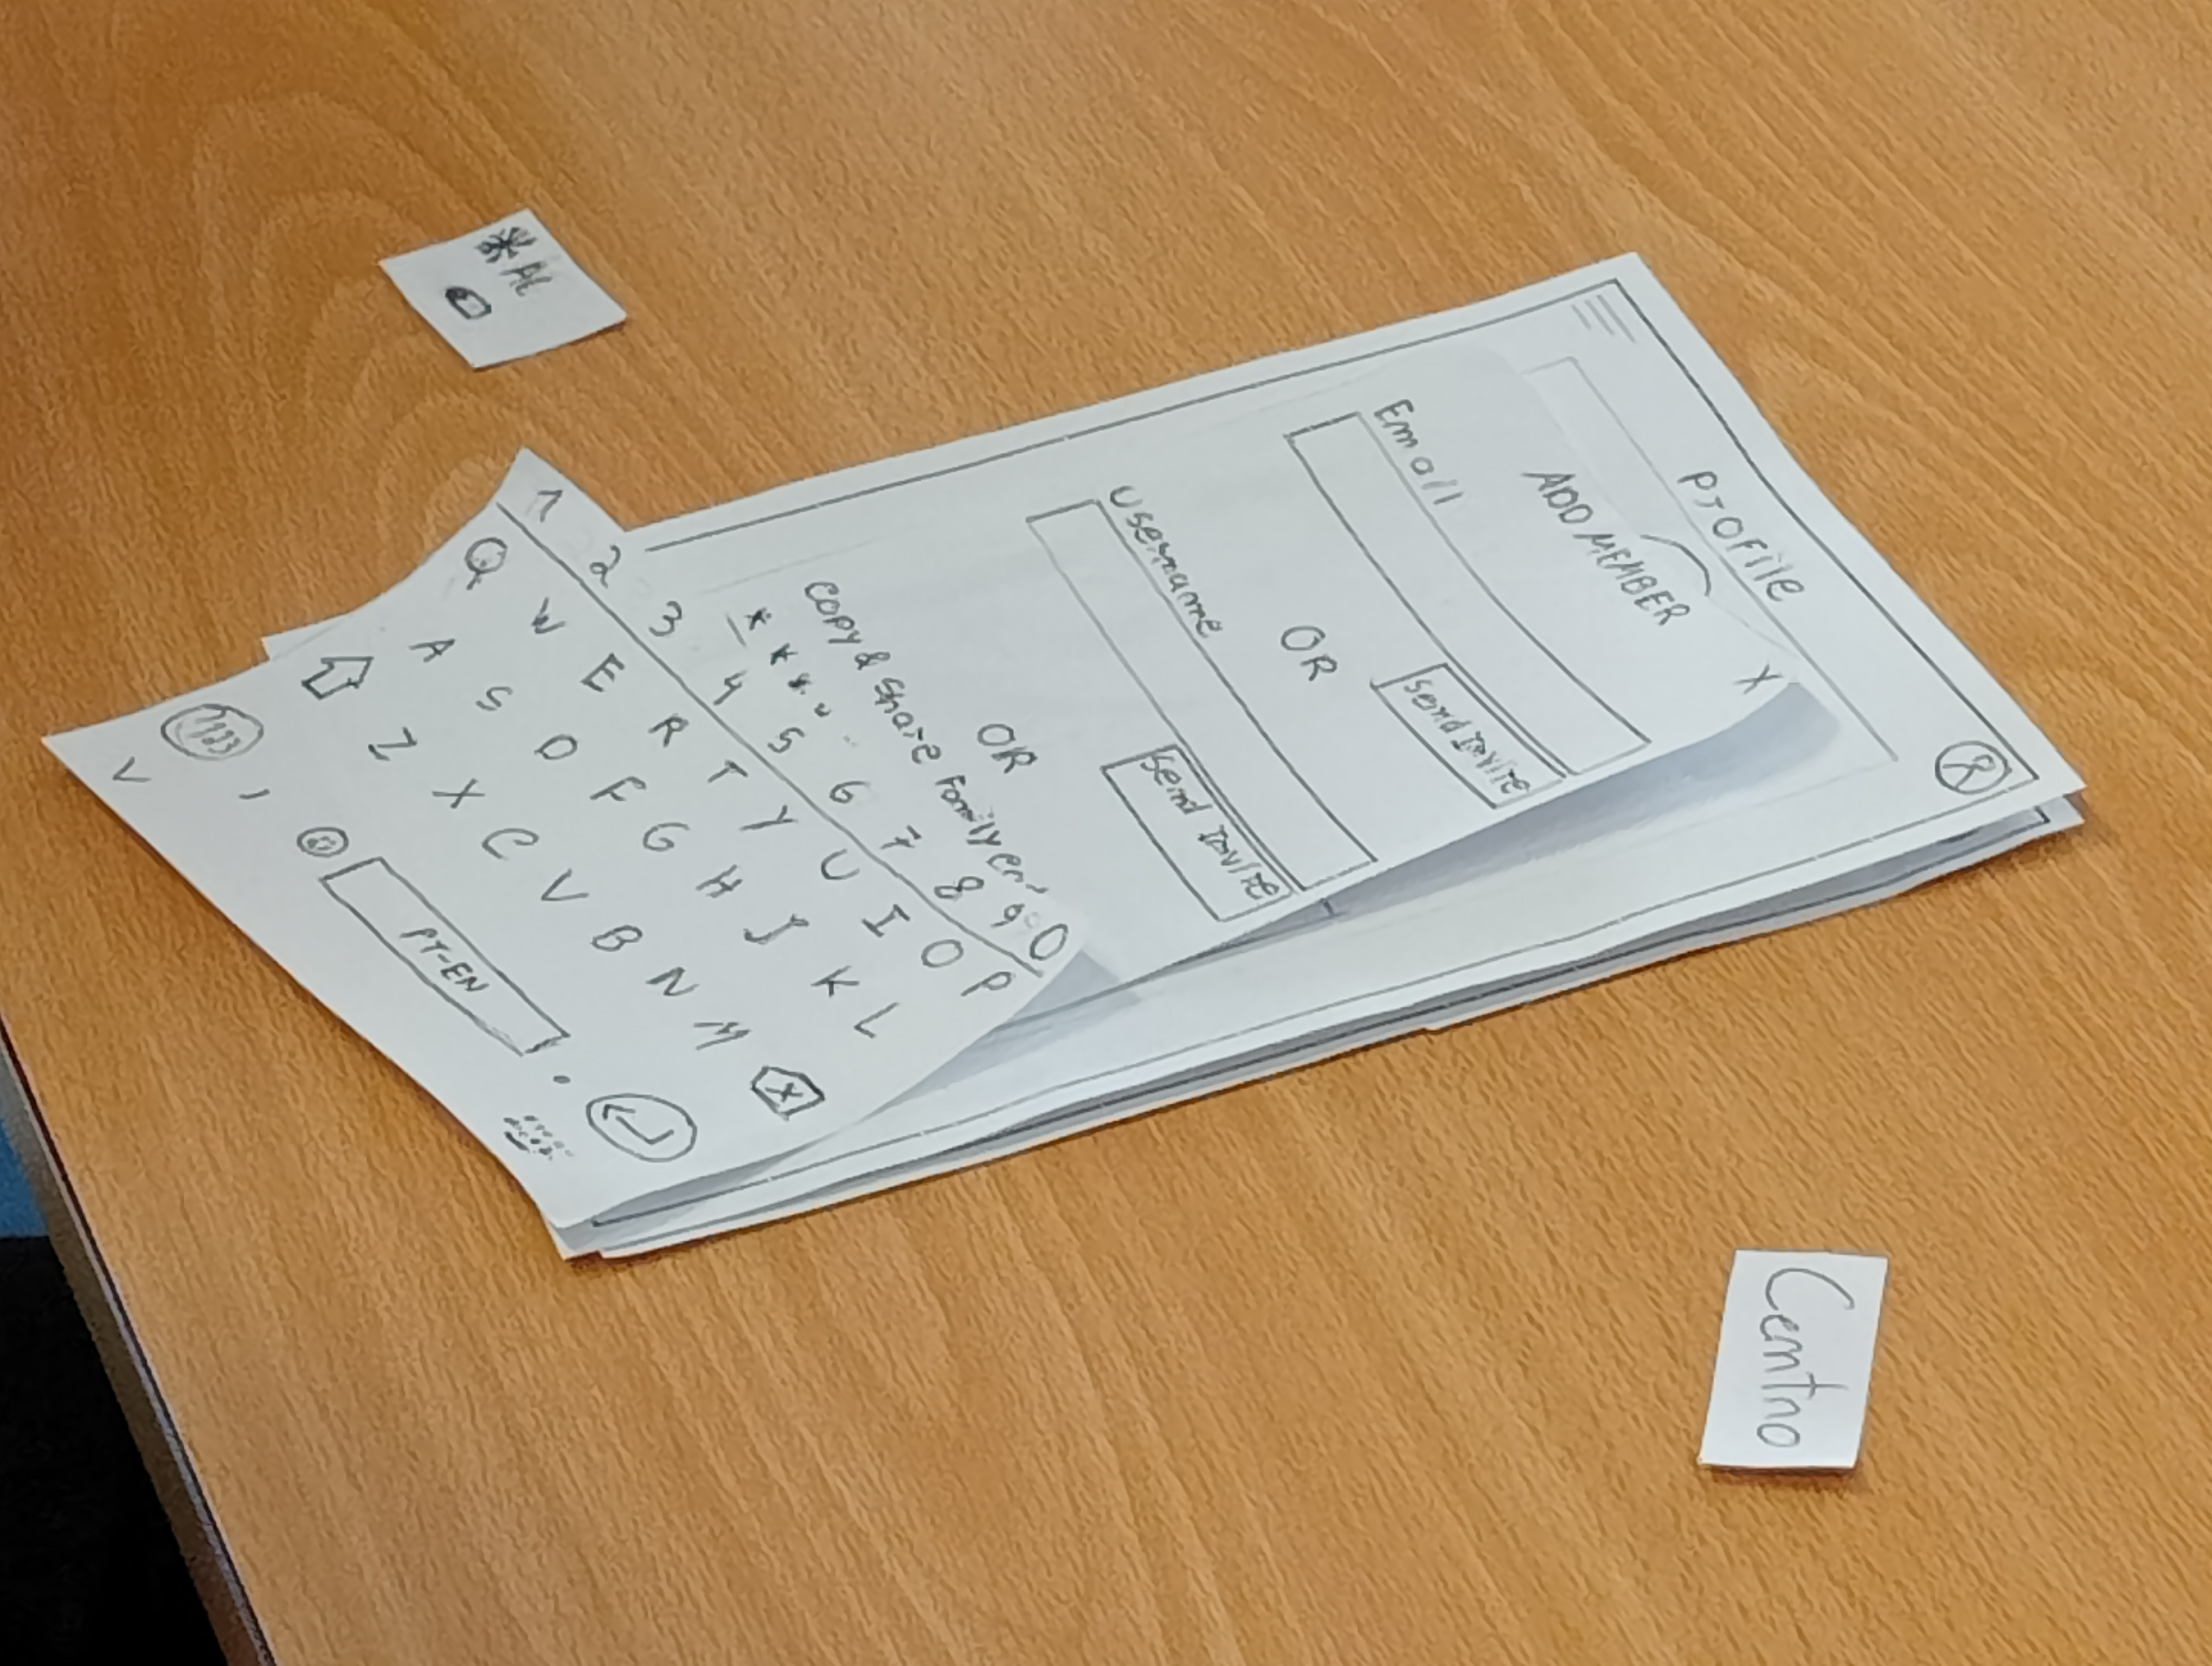 Profile
ADD MEMBER
X
Email
Send Invite
OR
Username
Send Invite
OR
Copy & Share Family
1 2 3 4 5 6 7 8 9 0
Q W E R T Y U I O P
A S D F G H J K L
Z X C V B N M X
, PT-EN .
AC
Centro